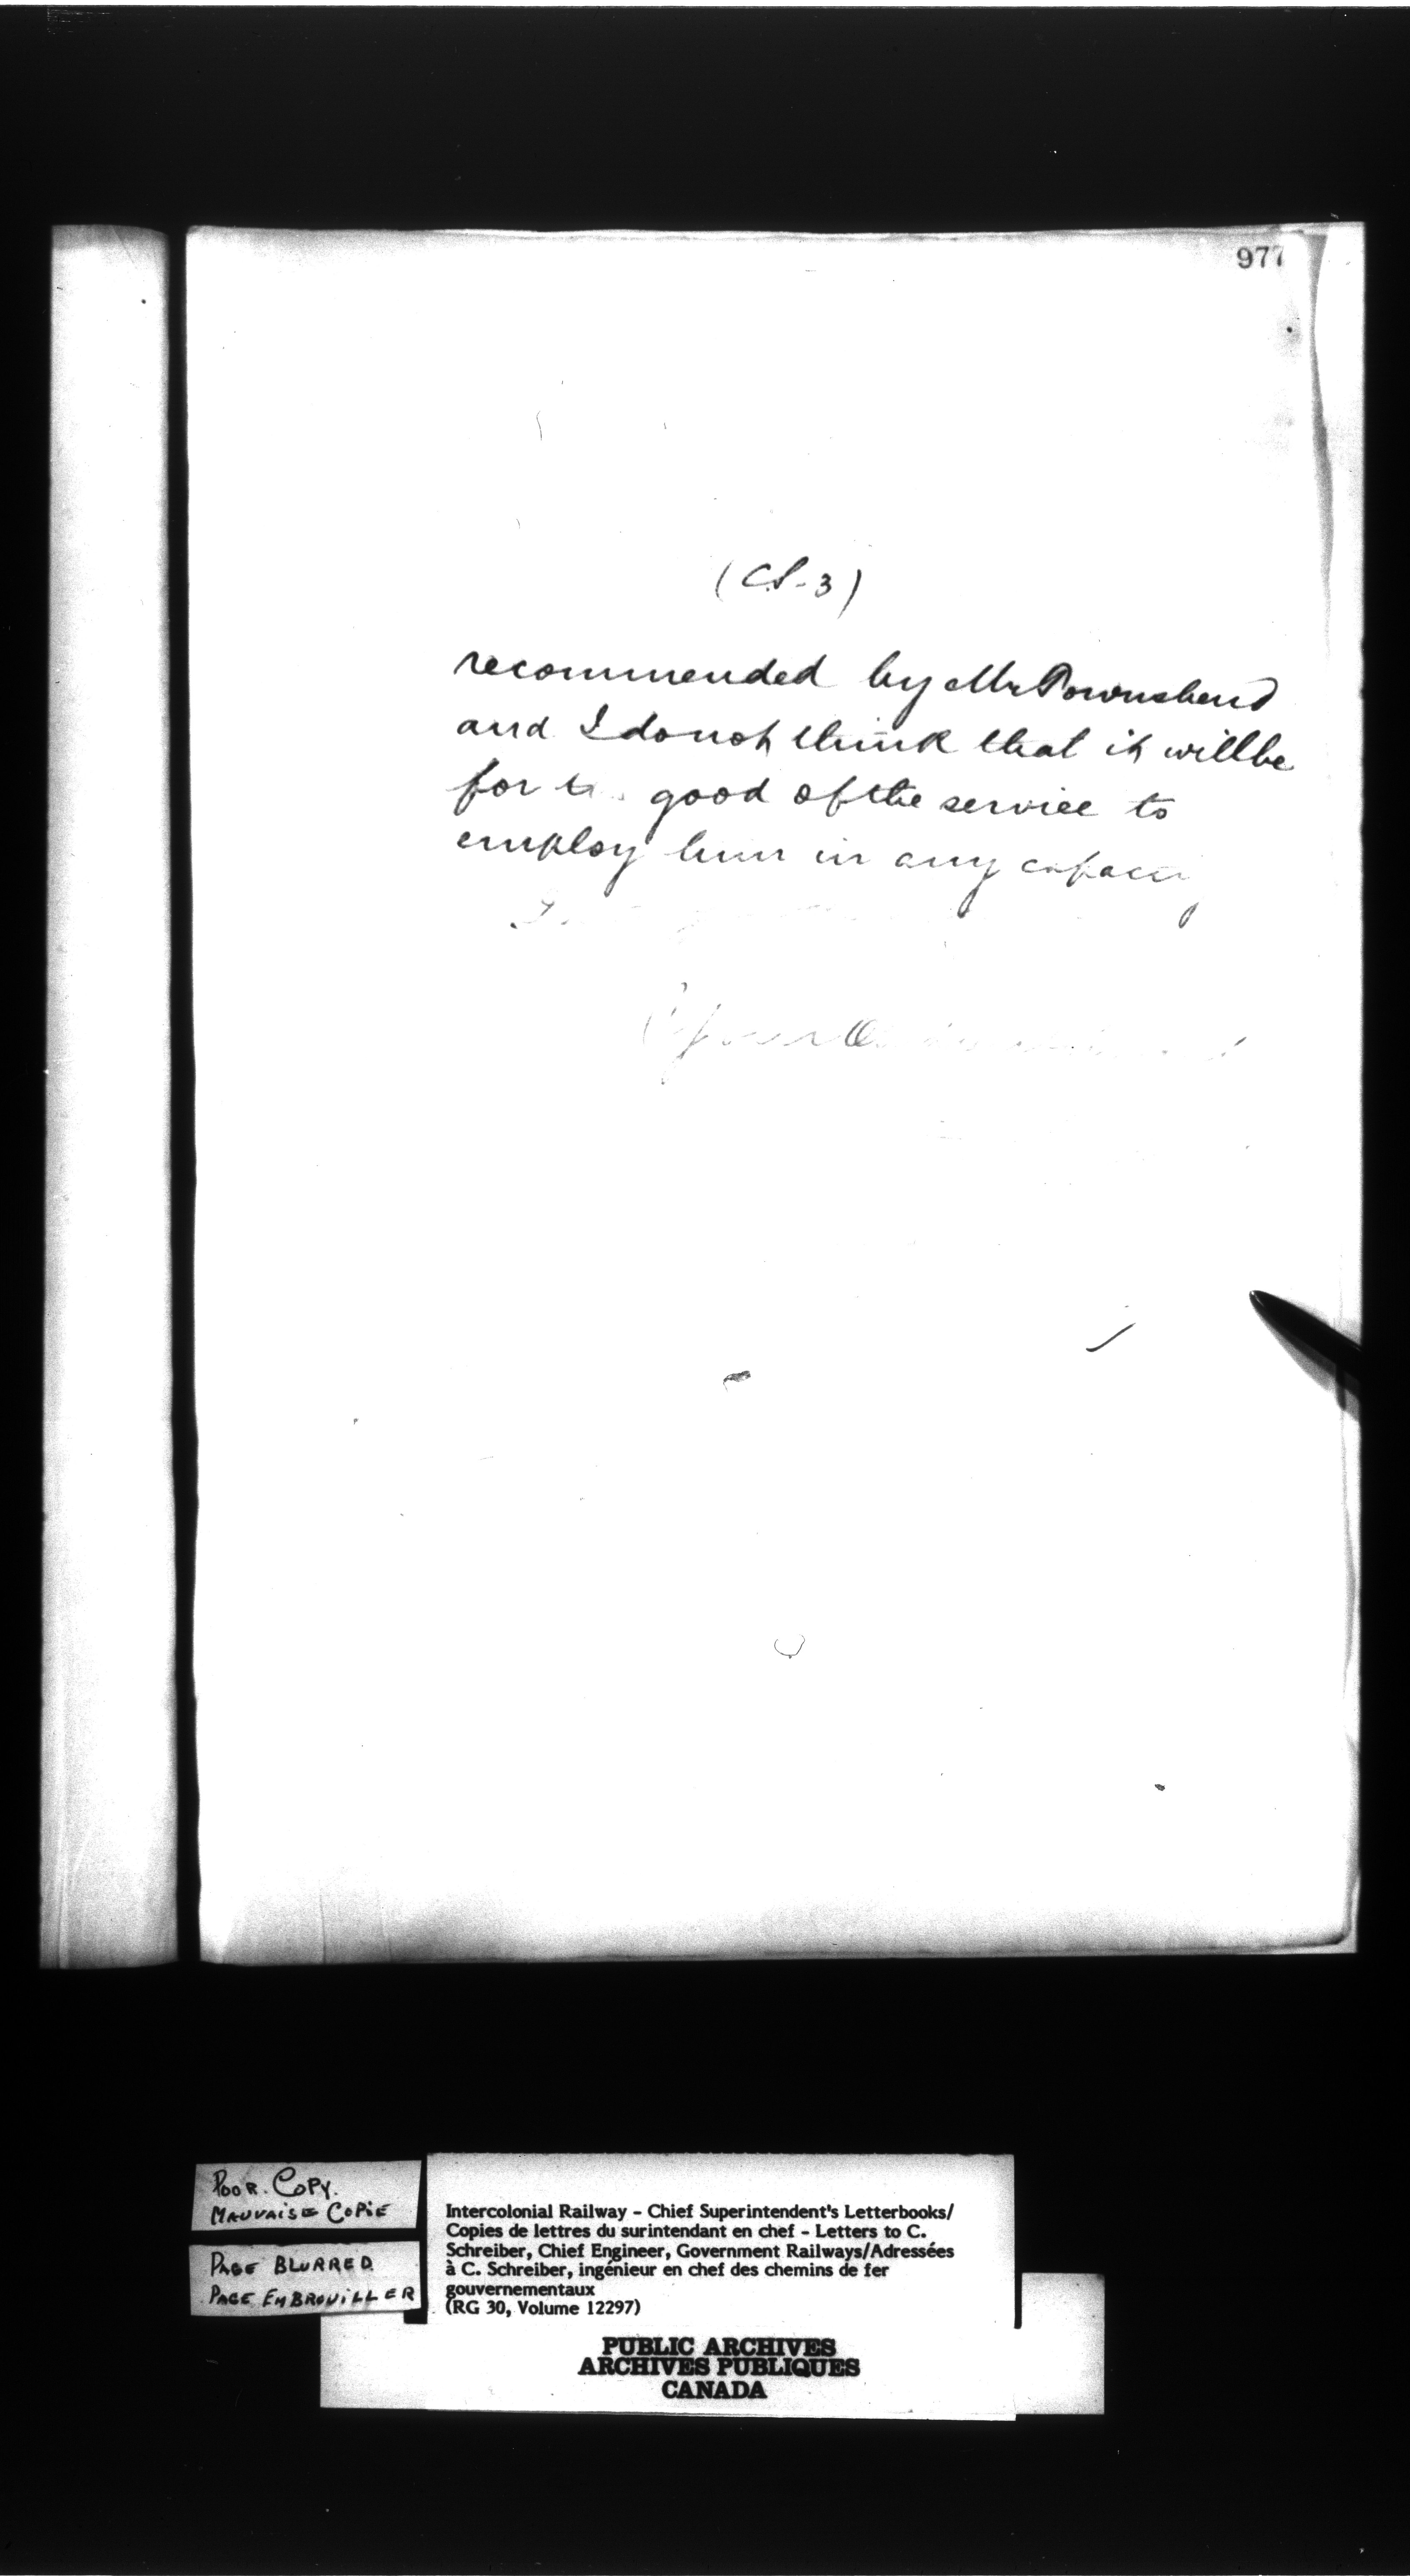 977
(C.S-3)
recommended by Mr Townshend
and I do not think that it will be
for good of the service to
employ him in any capacity
Your Ob
POOR. COPY.
MAUVAISE COPIE
PAGE BLURRED
PAGE EMBROUILLER
Intercolonial Railway - Chief Superintendent's Letterbooks/
Copies de lettres du surintendant en chef - Letters to C.
Schreiber, Chief Engineer, Government Railways/Adressées
à C. Schreiber, ingénieur en chef des chemins de fer
gouvernementaux
(RG 30, Volume 12297)
PUBLIC ARCHIVES
ARCHIVES PUBLIQUES
CANADA